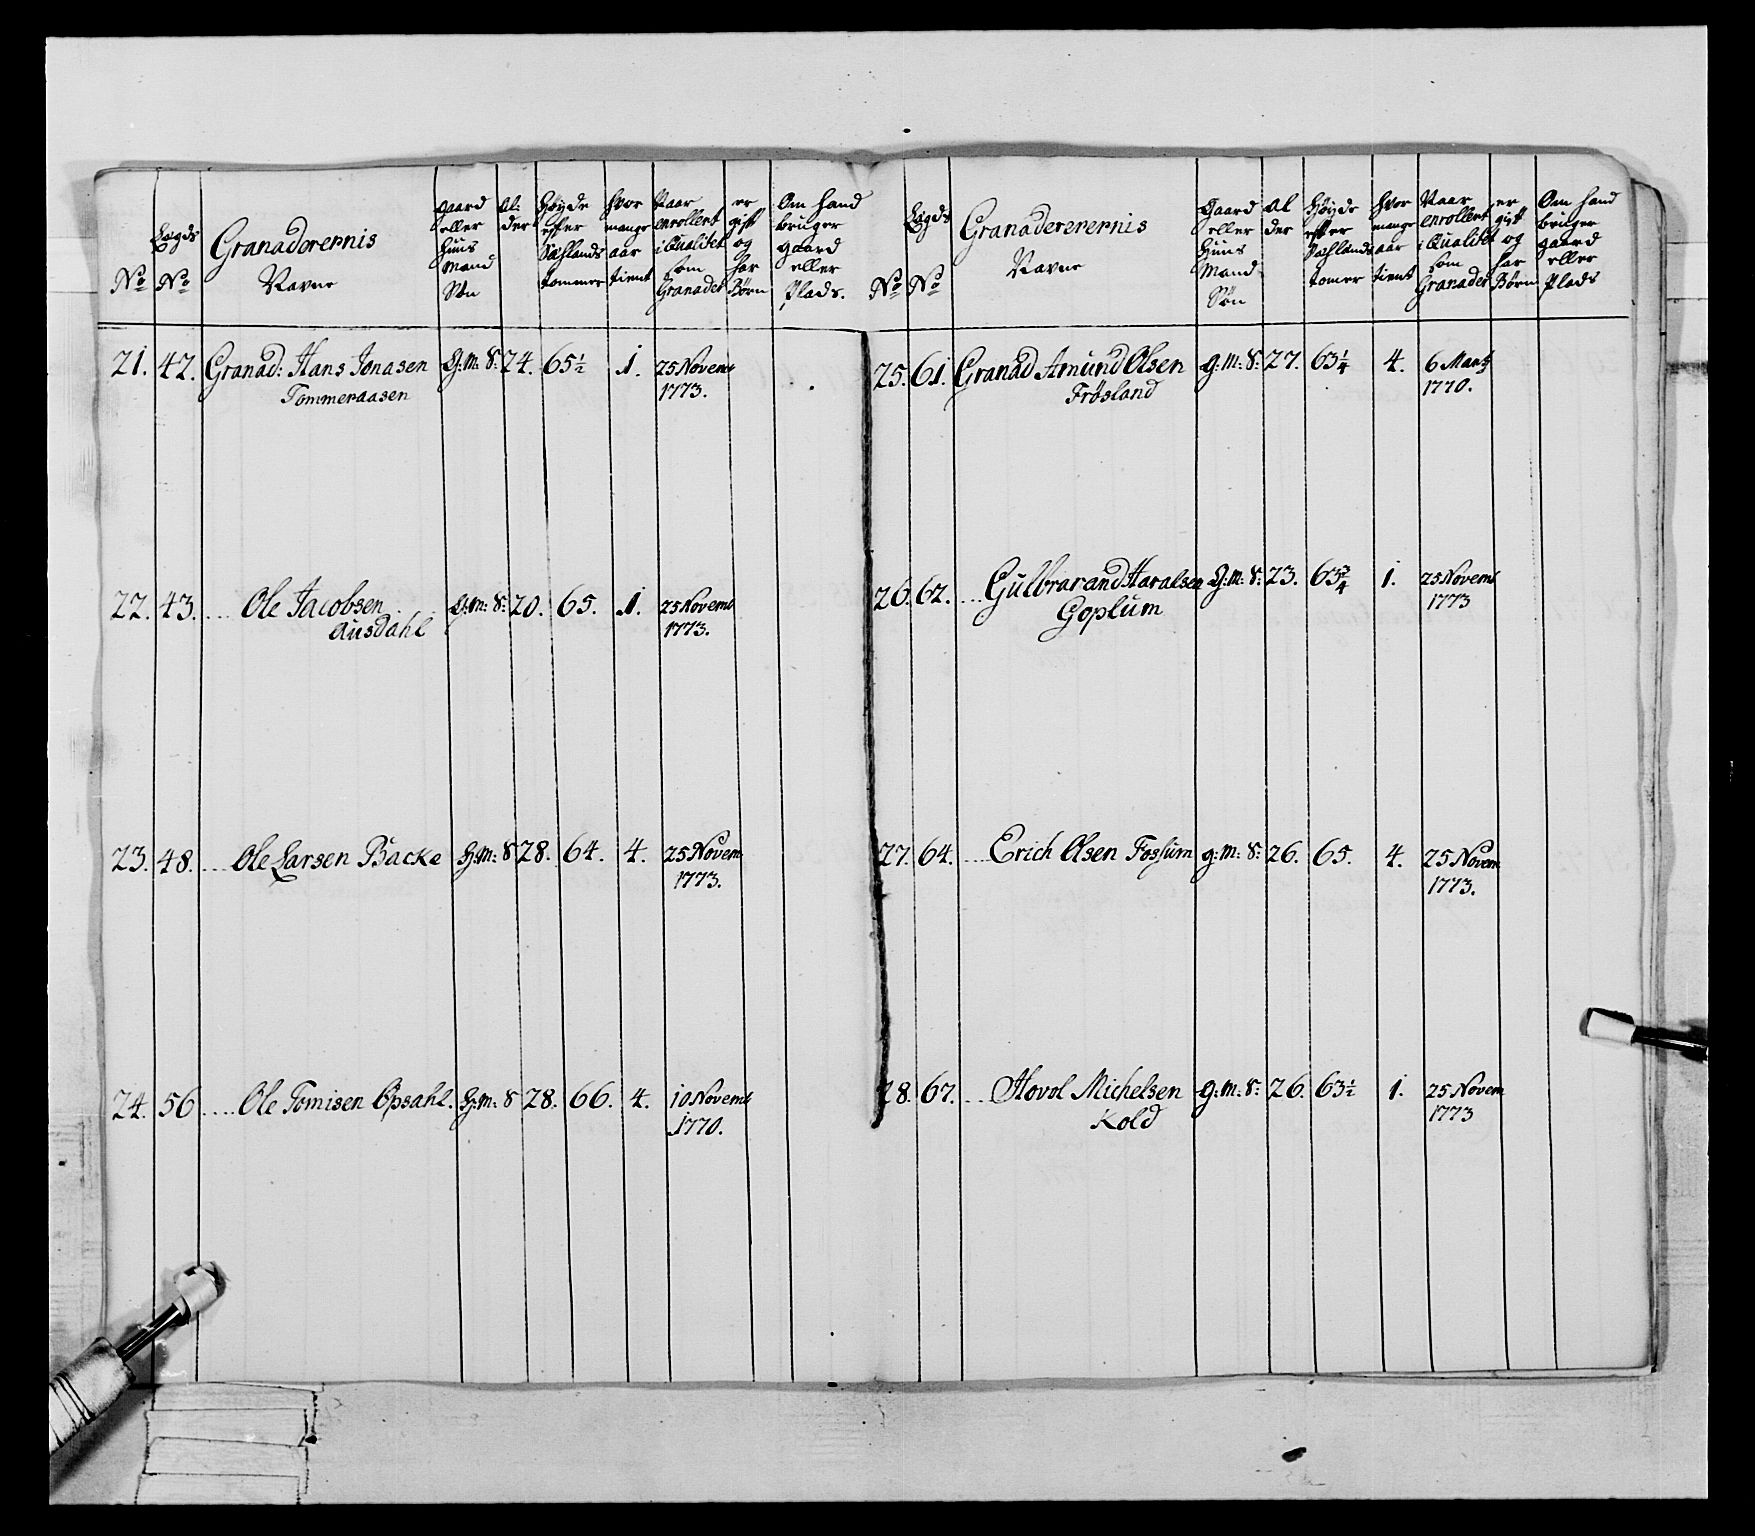 No
Lægds No
Granaderernis Navne
gaard eller Huus Mand Søn
Al: der
Høyde efter Siehlands tommer
hvor mange aar tient
Naar enrollert i Qualitet som Granader
er gift og har Børn
Om hand bruger gaard eller Plads.
21. 42. Granad: Hans Jonasen G:m: S: 24. 65½ 1. 25 Novemb
Tommeraasen 1773.
22. 43. .... Ole Jacobsen G:m: S: 20. 65. 1. 25 Novemb
Ausdahl 1773.
23. 48. .... Ole Larsen Backe H:m: S 28. 64. 4. 25 Novem
1773.
24. 56 .... Ole Tomisen Opsahl. H:m: S 28. 66. 4. 10 Novemb
1770.
No
Lægds No
Granadererernis Navne
Gaard eller Huus Mand Søn
Al der
Høyde efter Siehlands tomer
hvor mange aar tient
Naar enrollert i Qualitet som Granader
er gift og har Børn
Om hand bruger gaard eller Plads
25. 61. Granad Amund Olsen g:m: S: 27. 63¼ 4. 6 Martj
Frösland 1770.
26. 62. .... Gulbrarand Haralsen G:m: S: 23. 63¾ 1. 25 Novemb
Goplum 1773
27. 64. .... Erich Olsen Fossum g:m: S: 26. 65. 4. 25 Novem
1773.
28. 67. .... Hovol Michelsen g:m: S: 26. 63½ 1. 25 Novem
Kold 1773